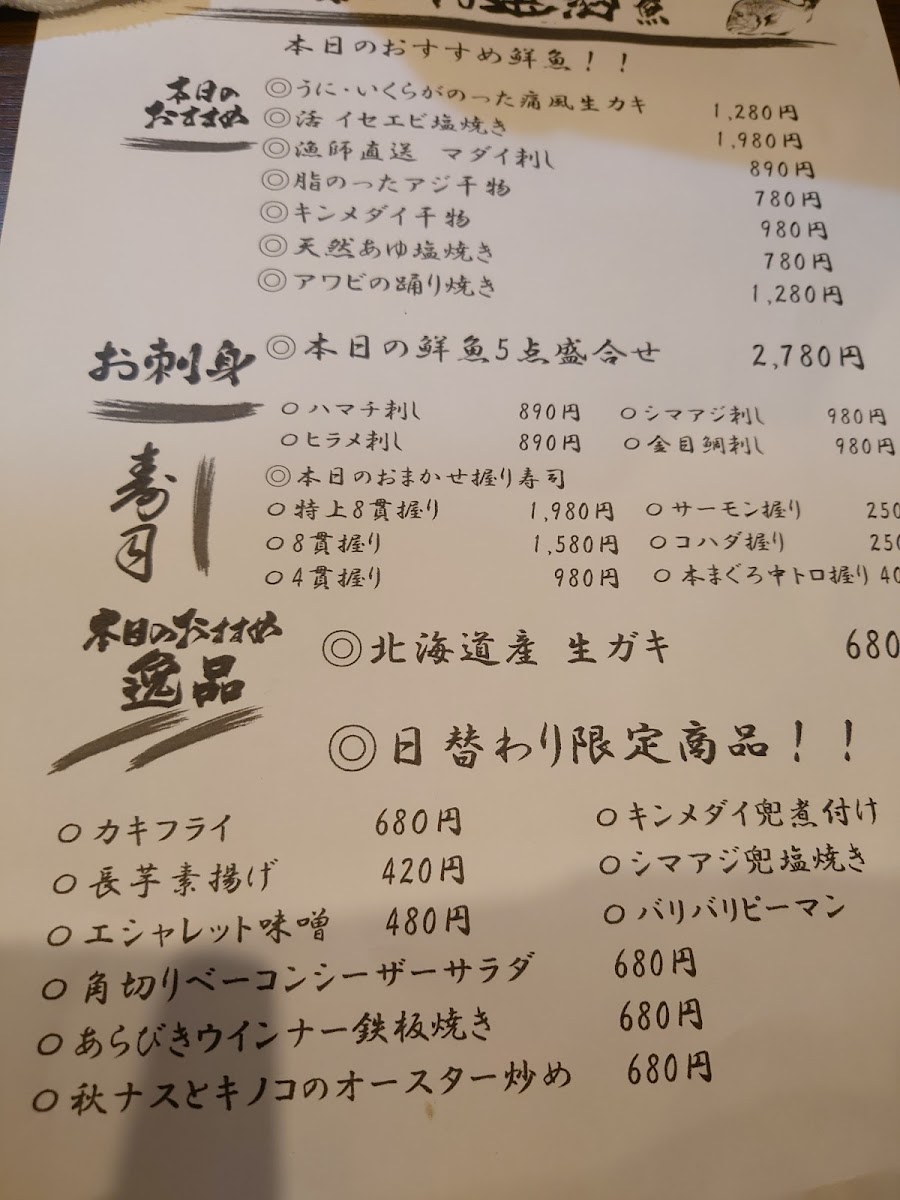 魚
本日のおすすめ鮮魚！！
本日の
おすすめ
◎うに・いくらがのった痛風生カキ 1,280円
◎活 イセエビ塩焼き 1,980円
◎漁師直送 マダイ刺し 890円
◎脂のったアジ干物 780円
◎キンメダイ干物 980円
◎天然あゆ塩焼き 780円
◎アワビの踊り焼き 1,280円
お刺身
◎本日の鮮魚5点盛合せ 2,780円
○ハマチ刺し 890円 ○シマアジ刺し 980円
○ヒラメ刺し 890円 ○金目鯛刺し 980円
寿司
◎本日のおまかせ握り寿司
○特上8貫握り 1,980円 ○サーモン握り 250
○8貫握り 1,580円 ○コハダ握り 250
○4貫握り 980円 ○本まぐろ中トロ握り 40
本日のおすすめ
逸品
◎北海道産 生ガキ 680
◎日替わり限定商品！！
○カキフライ 680円 ○キンメダイ兜煮付け
○長芋素揚げ 420円 ○シマアジ兜塩焼き
○エシャレット味噌 480円 ○バリバリピーマン
○角切りベーコンシーザーサラダ 680円
○あらびきウインナー鉄板焼き 680円
○秋ナスとキノコのオースター炒め 680円